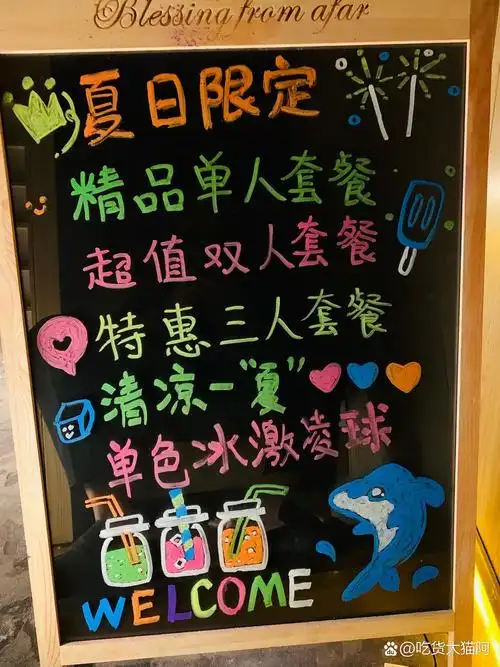 Blessing from afar
夏日限定
精品单人套餐
超值双人套餐
特惠三人套餐
清凉一"夏"
单色冰激凌球
WELCOME
@吃货大猫阿